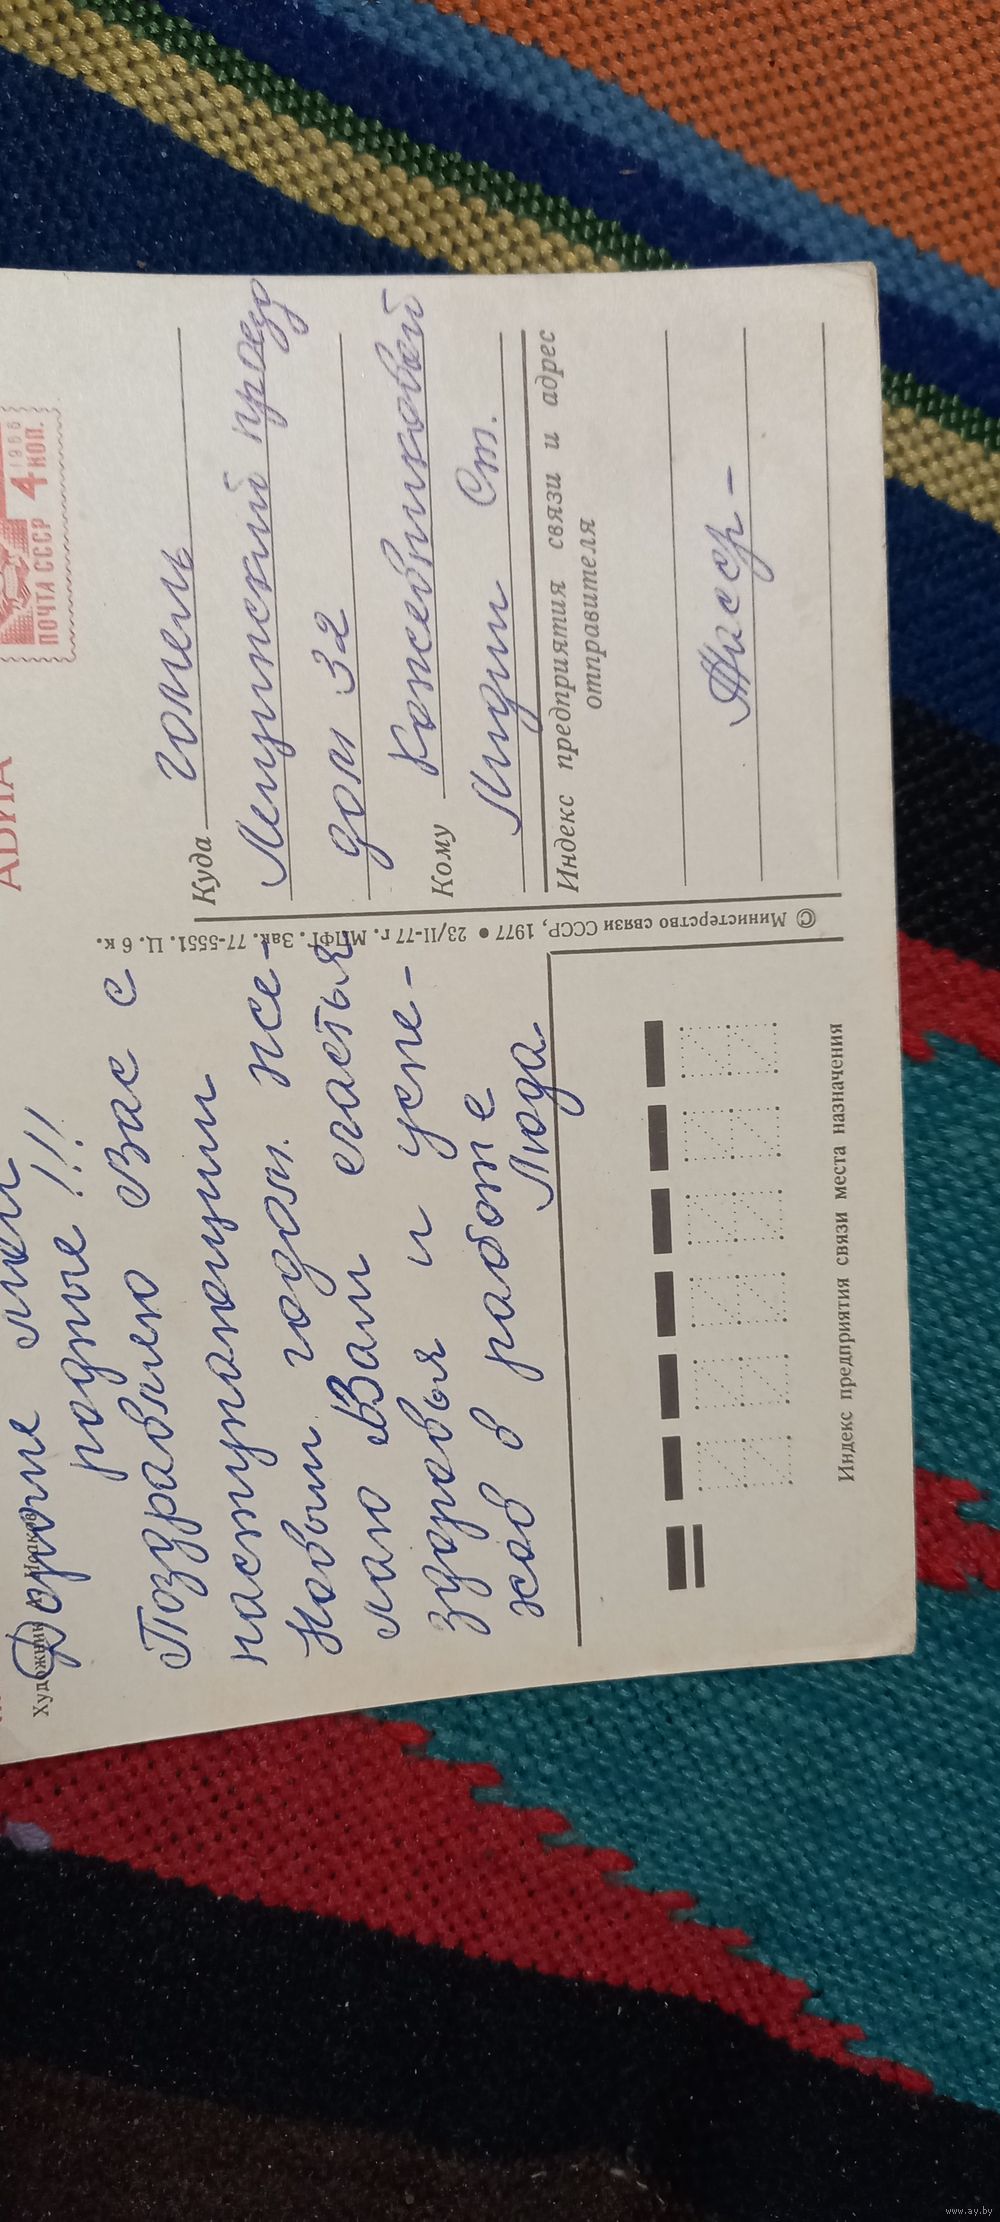 АВИА
ПОЧТА СССР
1966
4 КОП.
Художник Исаков
Дорогие мои
родные!!!
Поздравляю Вас с
наступающим
Новым годом. Же-
лаю Вам счастья
здоровья и успе-
хов в работе
Люда
© Министерство связи СССР, 1977 • 23/II-77 г. МПФГ. Зак. 77-5551. Ц. 6 к.
Куда Гомель
Лещинский проезд
дом 32
Кому Кожевниковой
Лидии Ст.
Индекс предприятия связи и адрес
отправителя
Индекс предприятия связи места назначения
www.ay.by